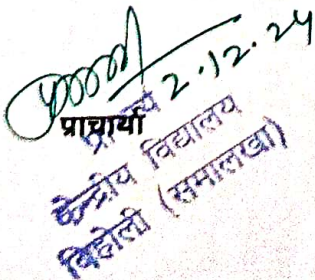 2.12.24
प्राचार्या
प्राचार्य
केन्द्रीय विद्यालय
बिहोली (समालखा)